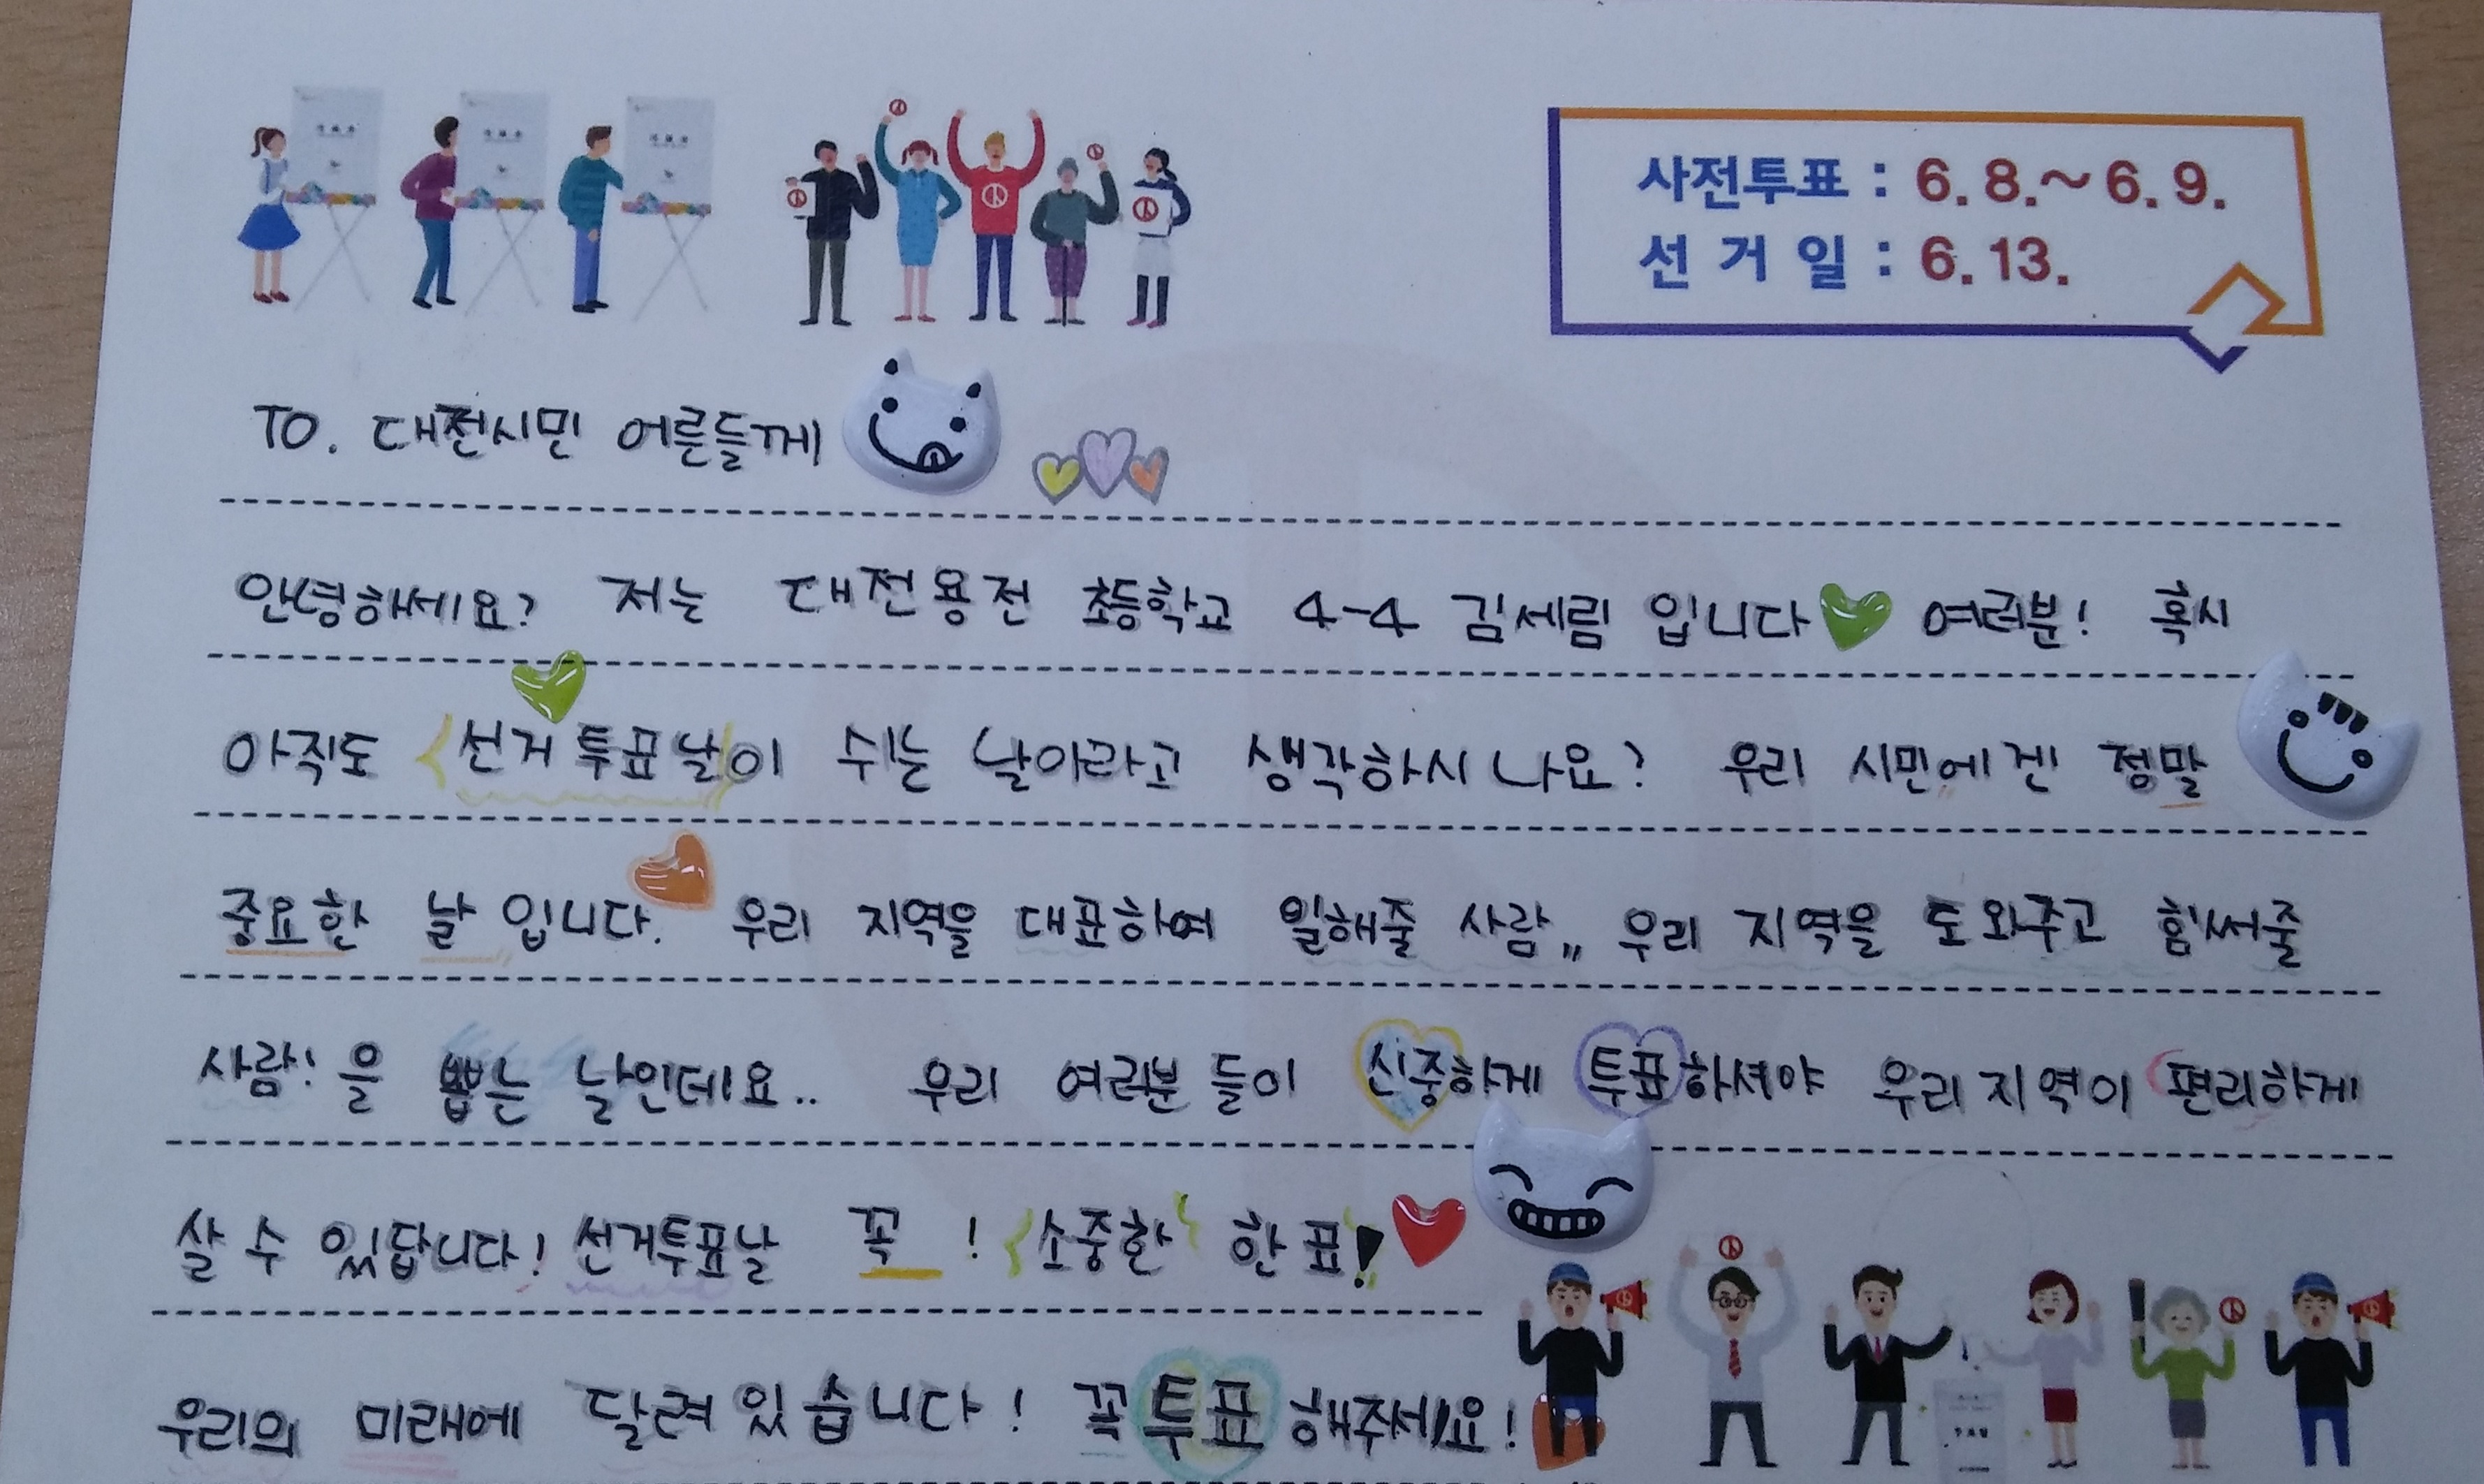 사전투표 : 6. 8.~6. 9.
선 거 일 : 6. 13.
TO. 대전시민 어른들께
안녕하세요? 저는 대전용전 초등학교 4-4 김세림 입니다 여러분! 혹시
아직도 선거 투표날이 쉬는 날이라고 생각하시나요? 우리 시민에겐 정말
중요한 날 입니다. 우리 지역을 대표하여 일해줄 사람,, 우리 지역을 도와주고 힘써줄
사람! 을 뽑는 날인데요.. 우리 여러분 들이 신중하게 투표하셔야 우리 지역이 편리하게
살 수 있답니다! 선거투표날 꼭 ! 소중한 한 표!
우리의 미래에 달려 있습니다! 꼭 투표 해주세요!